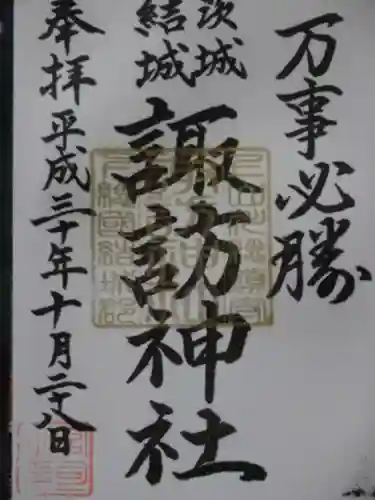 万事必勝
茨城
結城
諏訪神社
奉拝
平成三十年十月二十八日